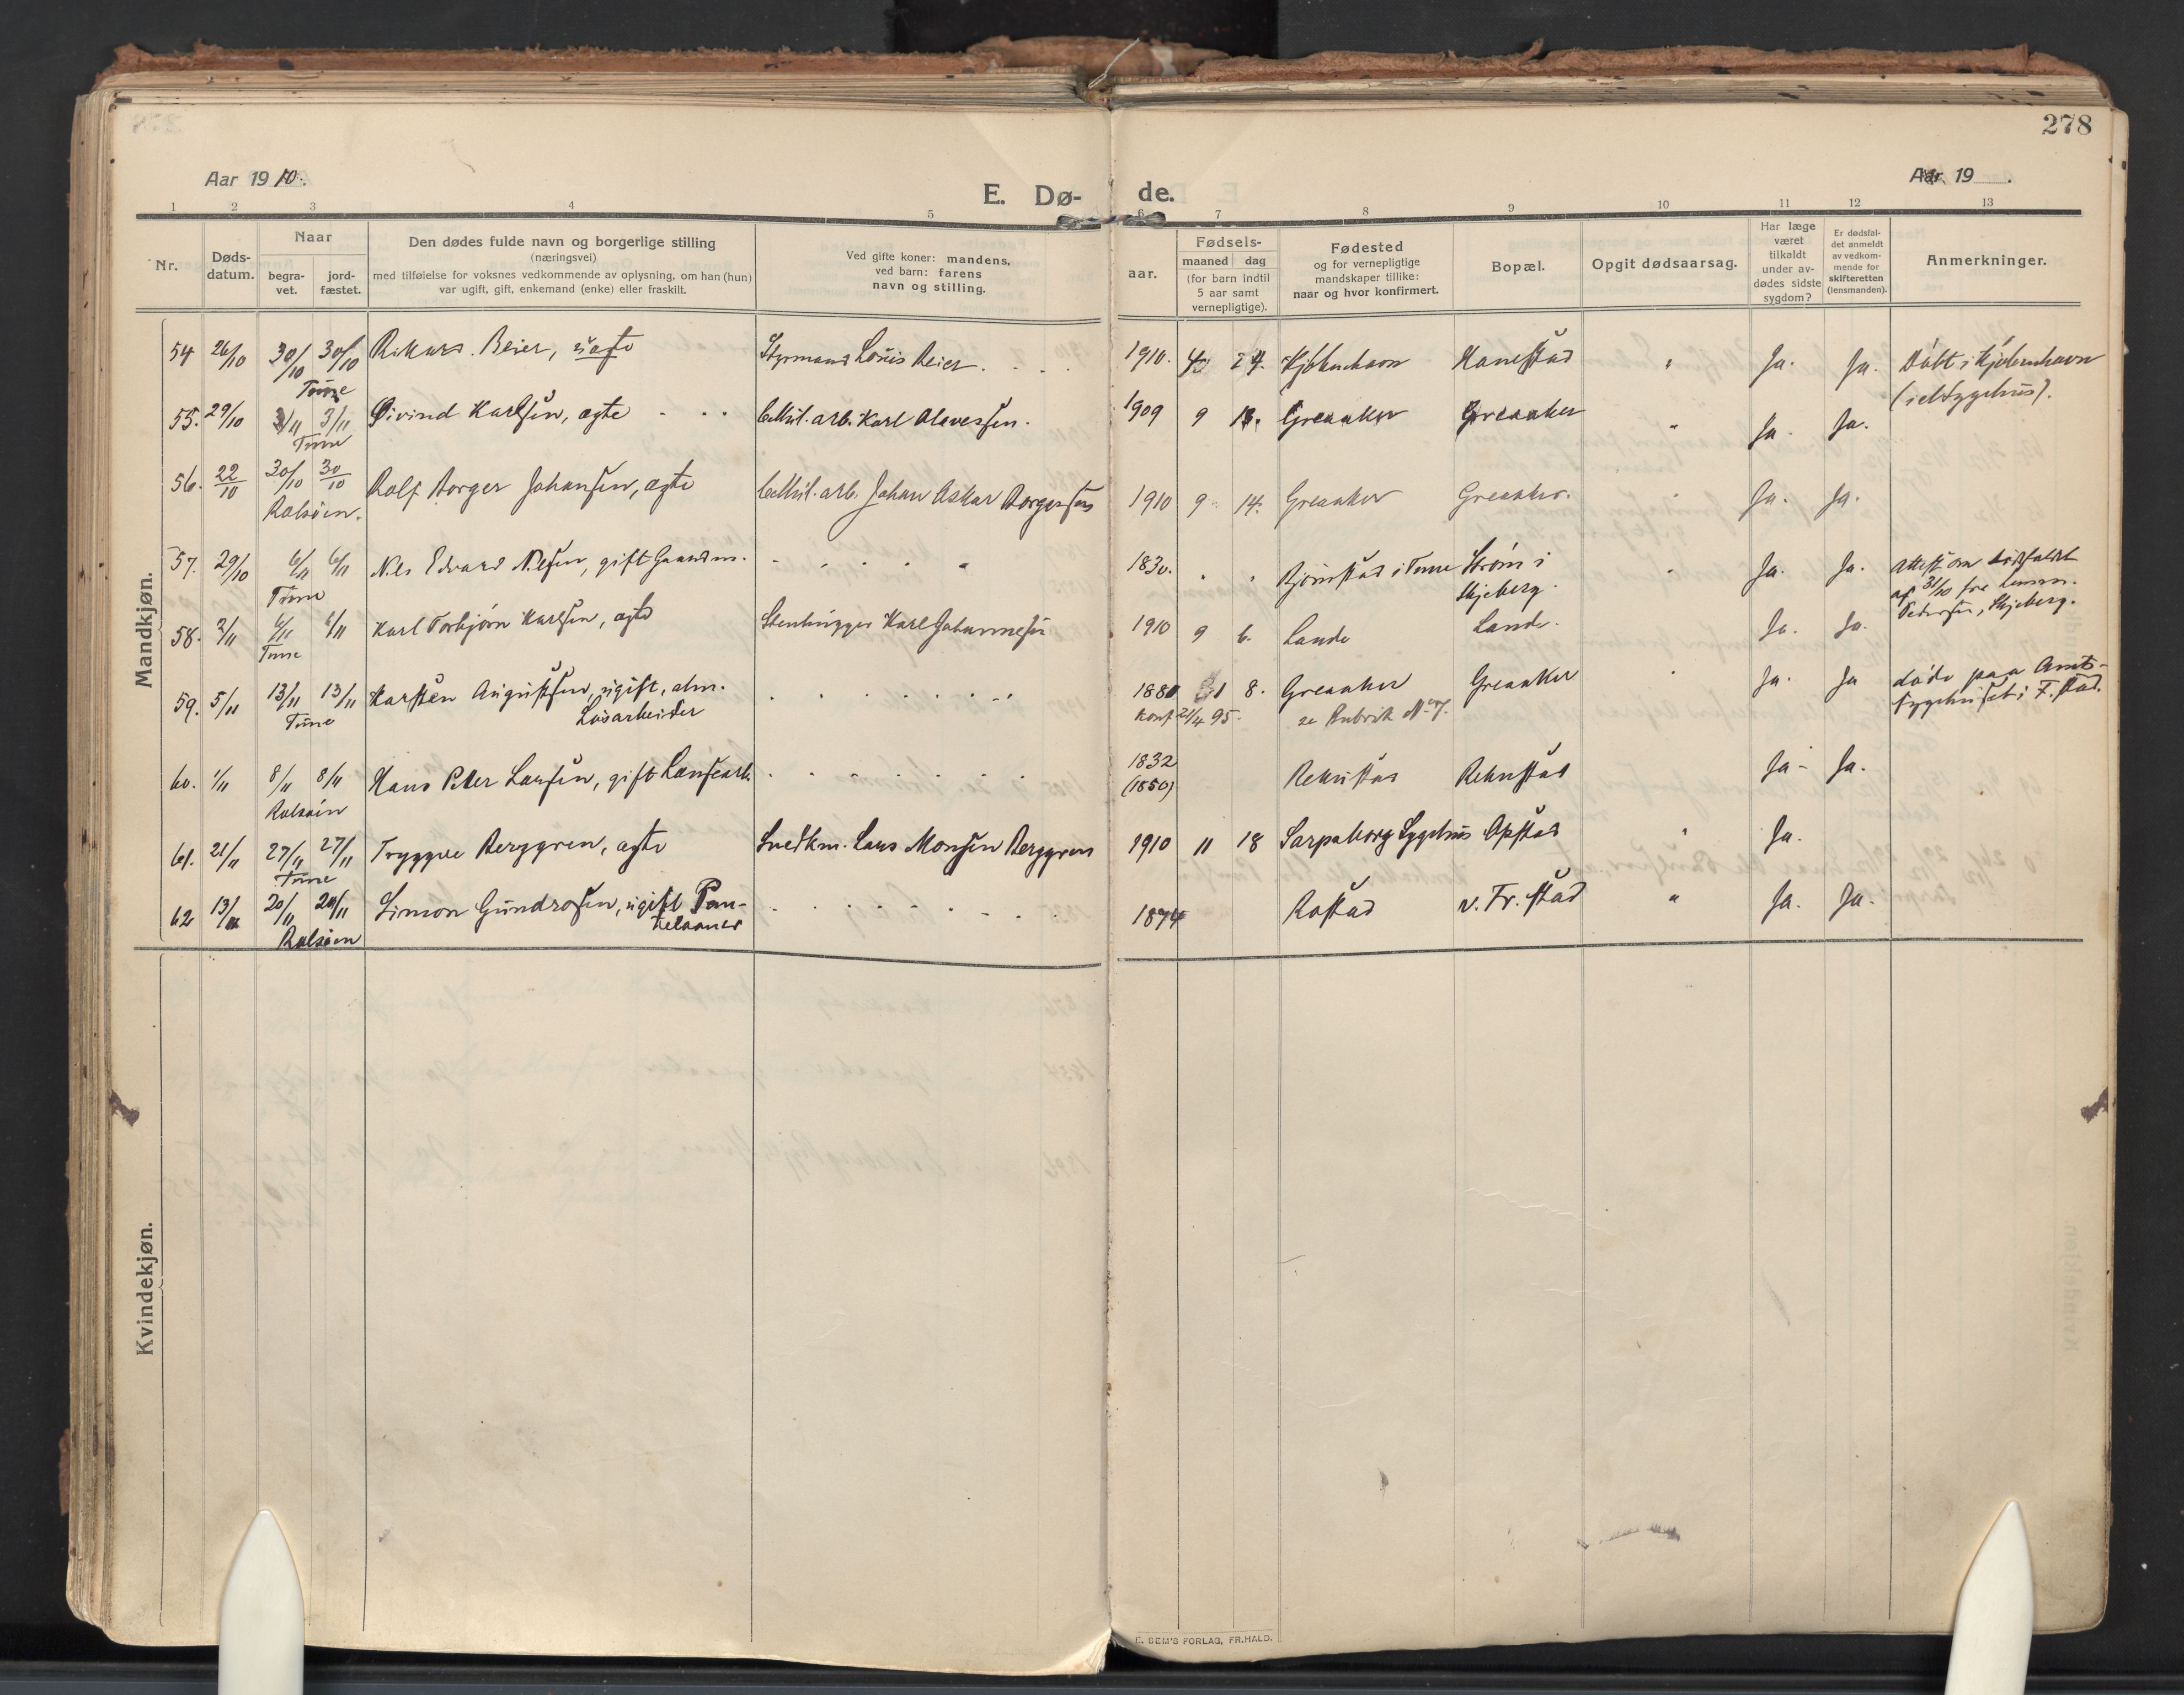 278
Aar 1910.
Aar 19 .
E. Dø-
de.
1 2 3 4 5 6 7 8 9 10 11 12 13
Nr.
Døds-
datum.
Naar
begra-
vet.
jord-
fæstet.
Den dødes fulde navn og borgerlige stilling
(næringsvei)
med tilføielse for voksnes vedkommende av oplysning, om han (hun)
var ugift, gift, enkemand (enke) eller fraskilt.
Ved gifte koner: mandens,
ved barn: farens
navn og stilling.
aar.
Fødsels-
maaned dag
(for barn indtil
5 aar samt
vernepligtige).
Fødested
og for vernepligtige
mandskaper tillike:
naar og hvor konfirmert.
Bopæl.
Opgit dødsaarsag.
Har læge
været
tilkaldt
under av-
dødes sidste
sygdom?
Er dødsfal-
det anmeldt
av vedkom-
mende for
skifteretten
(lensmanden).
Anmerkninger.
Mandkjøn.
54 26/10 30/10 30/10 Rikard Beier, uægte Styrmand Louis Beier. 1910. 24. Kjøbenhavn Hanestad " Ja. Ja. Døbt i Kjøbenhavn
Tune
55. 29/10 3/11 3/11 Øivind Karlsen, ægte Cellul. arb. Karl Olavessen. 1909 9 13. Greaaker Greaaker " Ja. Ja.
Tune
56. 22/10 30/10 30/10 Rolf Borger Johansen, ægte Cellul. arb. Johan Oskar Borgersen 1910 9 14. Greaaker Greaaker. " Ja. Ja.
Rolsøien.
57. 29/10 6/11 6/11 Nils Edvard Nilsen, gift Gaardm. 1830. Bjørnstad i Tune Strøm i " Ja. Ja. Attest om dødsfaldet
Skjeberg.
af 31/10 fra lensm.
Tune
Pedersen, Skjeberg.
58. 2/11 6/11 6/11 Karl Torbjørn Karlsen, ægte Stenhugger Karl Johannesen 1910 9 6. Lande Lande. Ja. Ja.
Tune
59. 5/11 13/11 13/11 Karsten Augustsen, ugift, alm. 1880 1 8. Greaaker Greaaker " Ja. Ja døde paa Amts-
Tune Løsarbeider konf 21/4 95. se Rubrik No 7. sygehuset i F.stad.
60. 1/11 8/11 8/11 Hans Peter Larsen, gift 1832 Rekustad Rekustad Ja - Ja.
Rolsøien (1850)
61. 21/11 27/11 27/11 Tryggve Berggren, ægte Snedkm. Lars Monsen Berggren 1910 11 18 Sarpsborg Sygehus Opstad " Ja.
Tune
62 13/11 20/11 20/11 Simon Gundrosen, ugift Pan-
telaaner 1874 Rostad v. Fr.stad " Ja. Ja.
Rolsøien
Kvindekjøn.
E. SEM'S FORLAG, FR.HALD.